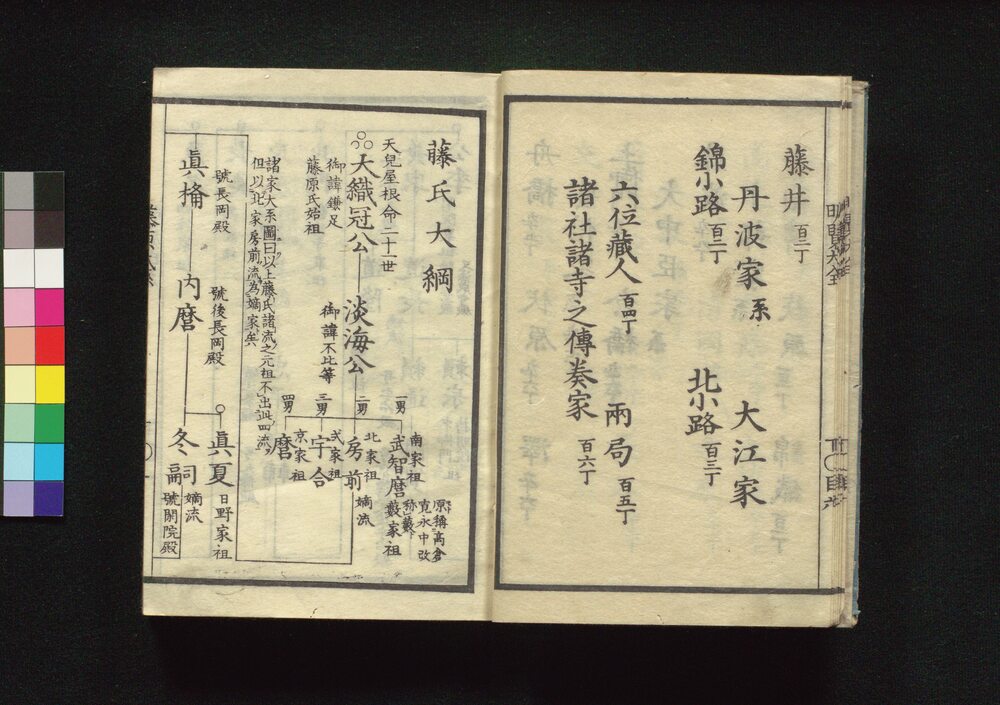 藤井 百二丁
丹波家 系 大江家
錦小路 百二丁 北小路 百三丁
六位藏人 百四丁 兩局 百五丁
諸社諸寺之傳奏家 百六丁
藤氏大綱
天兒屋根命二十一世
大織冠公
御諱鎌足
藤原氏始祖
淡海公
御諱不比等
諸家大系圖曰以上藤氏諸流之元祖不出此四流
但以北家房前流為嫡家矣
一男
南家祖
武智麿
藪家祖
原稱高倉
寛永中改
称藪
二男
北家祖
房前
嫡流
三男
式家祖
宇合
四男
京家祖
麿
號長岡殿
眞楯
號後長岡殿
内麿
眞夏
日野家祖
冬嗣
嫡流
號閑院殿